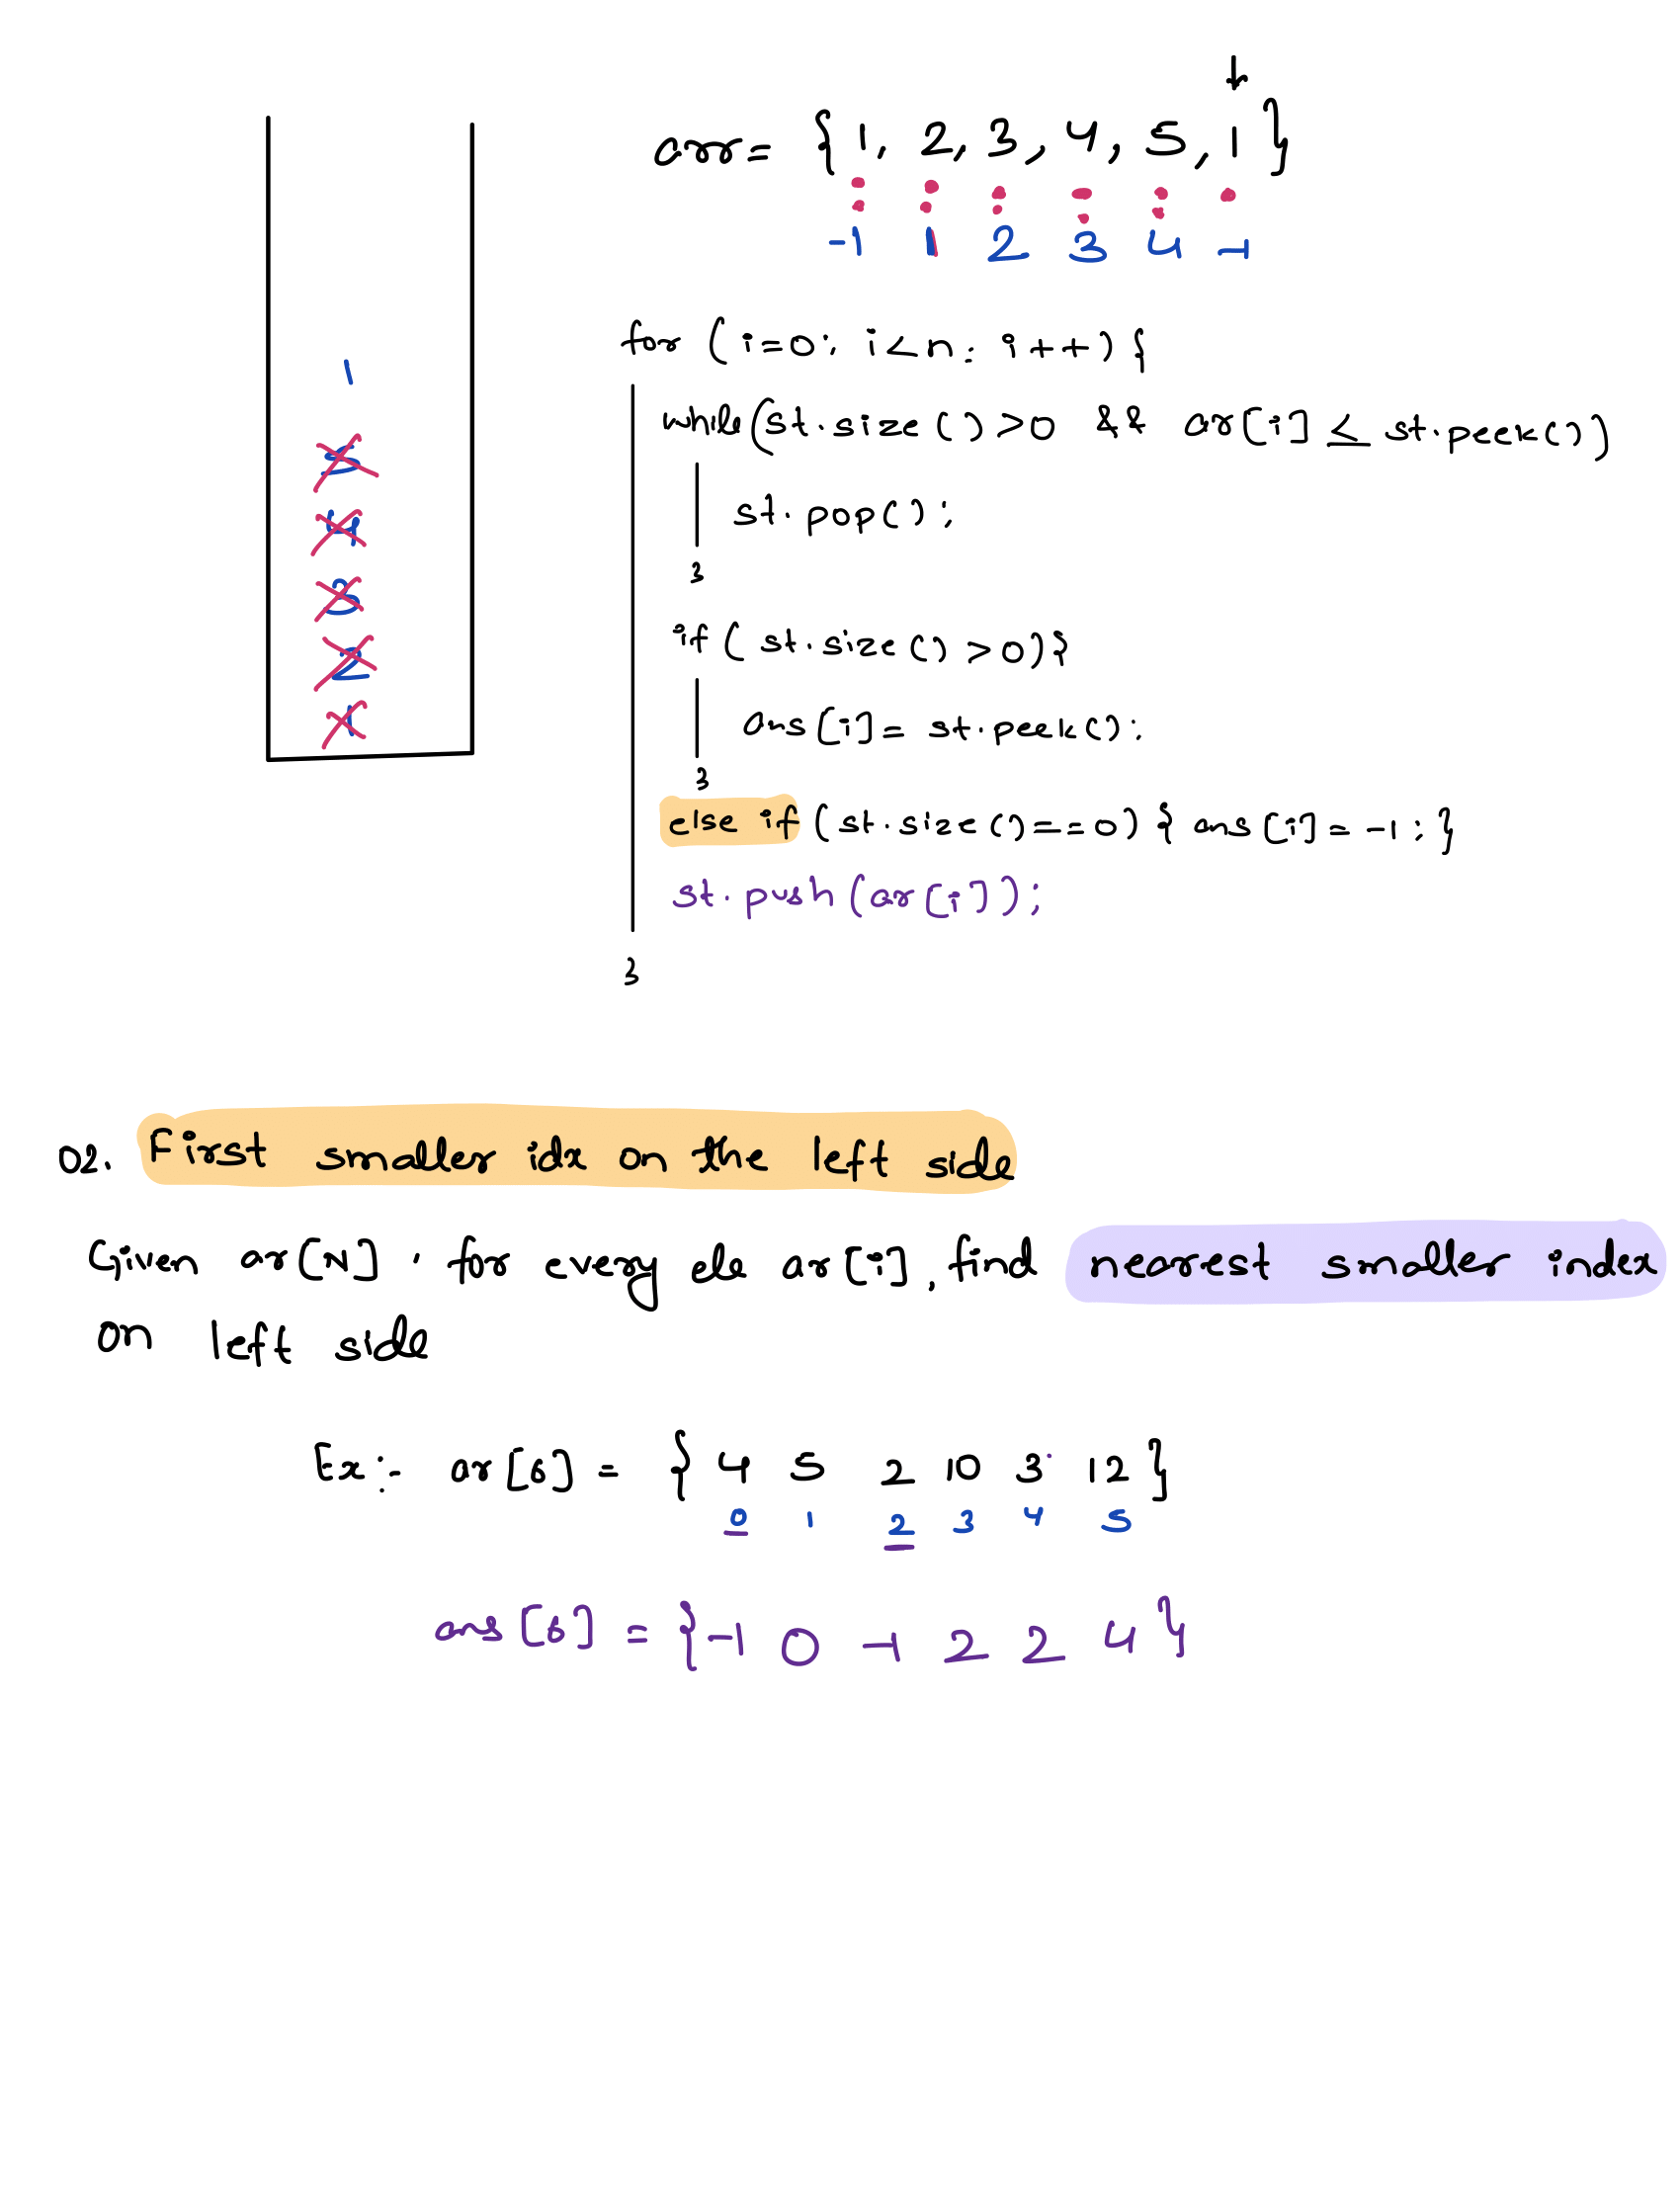 arr= {1, 2, 3, 4, 5, 1}
-1 1 2 3 4 -1
for (i=0; i<n; i++) {
1
while(st.size()>0 && ar[i] ≤ st.peek())
5
st.pop();
4
}
3
if( st.size() >0){
2
ans[i]= st.peek();
1
}
else if (st.size()==0) { ans[i] = -1; }
st.push(ar[i]);
}
02. First smaller idx on the left side
Given ar[N]. for every ele ar[i], find nearest smaller index
on left side
Ex:- ar[6] = { 4 5 2 10 3 12 }
0 1 2 3 4 5
ans[6] = {-1 0 -1 2 2 4}